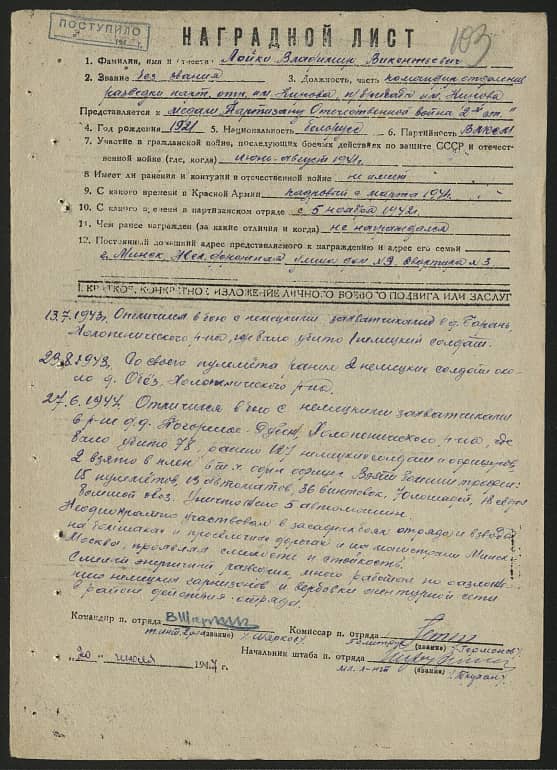 ПОСТУПИЛО
103
НАГРАДНОЙ ЛИСТ
1. Фамилия, имя и отчество Лойко Владимир Викентьевич
2. Звание без звания 3. Должность, часть командир отделения
разведки парт. отр. им. Кирова п/бригада им. Кирова
Представляется к медали Партизану Отечественной война 2й ст."
4. Год рождения 1921 5. Национальность белорус 6. Партийность ВЛКСМ
7. Участие в гражданской войне, последующих боевых действиях по защите СССР и отечест-
венной войне (где, когда) июнь-август 1941г.
8. Имеет ли ранения и контузии в отечественной войне не имеет
9. С какого времени в Красной Армии кадровый с марта 194
10. С какого времени в партизанском отряде с 5 ноября 1942г.
11. Чем ранее награжден (за какие отличия и когда) не награждался
12. Постоянный домашний адрес представляемого к награждению и адрес его семьи
г. Минск, дорожная улица дом №9 квартира №3
I. КРАТКОЕ, КОНКРЕТНОЕ ИЗЛОЖЕНИЕ ЛИЧНОГО БОЕВОГО ПОДВИГА ИЛИ ЗАСЛУГ
13.7.1943г. Отличился в бою с немецкими захватчиками в д. Барань
Холопеничского р-на, где было убито немецкий солдат.
29.8.1943г. Со своего пулемёта ранил 2 немецких солдат око-
ло д. Обоз, Холопеничского р-на.
27.6.1944г. Отличился в бою с немецкими захватчиками
в р-не д.д. Холопеничского р-на, где
было убито 78, ранено немецких солдат и офицеров,
2 взято в плен в т.ч. один офицер. Взяты трофеи:
15 пулемётов, 13 автоматов, 36 винтовок, лошадей, 18
обоз. Уничтожено 5 автомашин.
Неоднократно участвовал в засадах и боях отряда и взвода
на большаках и просёлочных дорогах и на магистрали Минск-
Москва, проявляя смелость и стойкость.
Смелый энергичный разведчик, много работал по разложе-
нию немецких гарнизонов и вербовки агентурной сети
в районе действия отряда.
Командир п. отряда
(звание) Шарко
Комиссар п. отряда
политрук (звание)
Начальник штаба п. отряда
мл. л-нт (звание)
"20" июля 1944 г.